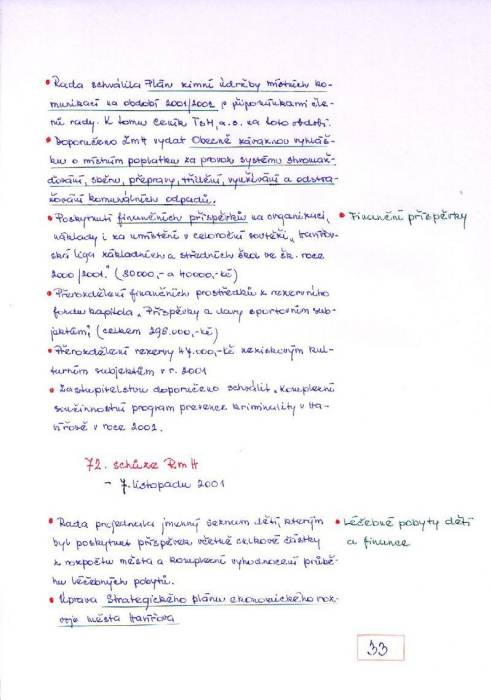 • Rada schválila Plán zimní údržby místních ko-
munikací na období 2001/2002 s připomínkami čle-
nů rady. K tomu Ceník TSH, a.s. na toto období.
• Doporučeno ZMH vydat Obecně závaznou vyhláš-
ku o místním poplatku za provoz systému shromaž-
ďování, sběru, přepravy, třídění, využívání a odstra-
ňování komunálních odpadů.
• Poskytnutí finančních příspěvků na organizaci,
• Finanční příspěvky
náklady i za umístění v celoroční soutěži „Havířov-
ská liga základních a středních škol ve šk. roce
2000/2001." (80000,- a 40000,-Kč)
• Přerozdělení finančních prostředků z rezervního
fondu kapitola „Příspěvky a dary sportovním sub-
jektům," (celkem 298.000,-Kč)
• Přerozdělení rezervy 47.000,-Kč neziskovým kul-
turním subjektům v r. 2001
• Zastupitelstvu doporučeno schválit „Komplexní
součinnostní program prevence kriminality v Ha-
vířově v roce 2002.
72. schůze RMH
- 7. listopadu 2001
• Rada projednala jmenný seznam dětí, kterým
• Léčebné pobyty dětí
byl poskytnut příspěvek včetně celkové částky
a finance
z rozpočtu města a komplexní vyhodnocení průbě-
hu léčebných pobytů.
• Úprava Strategického plánu ekonomického roz-
voje města Havířova
33